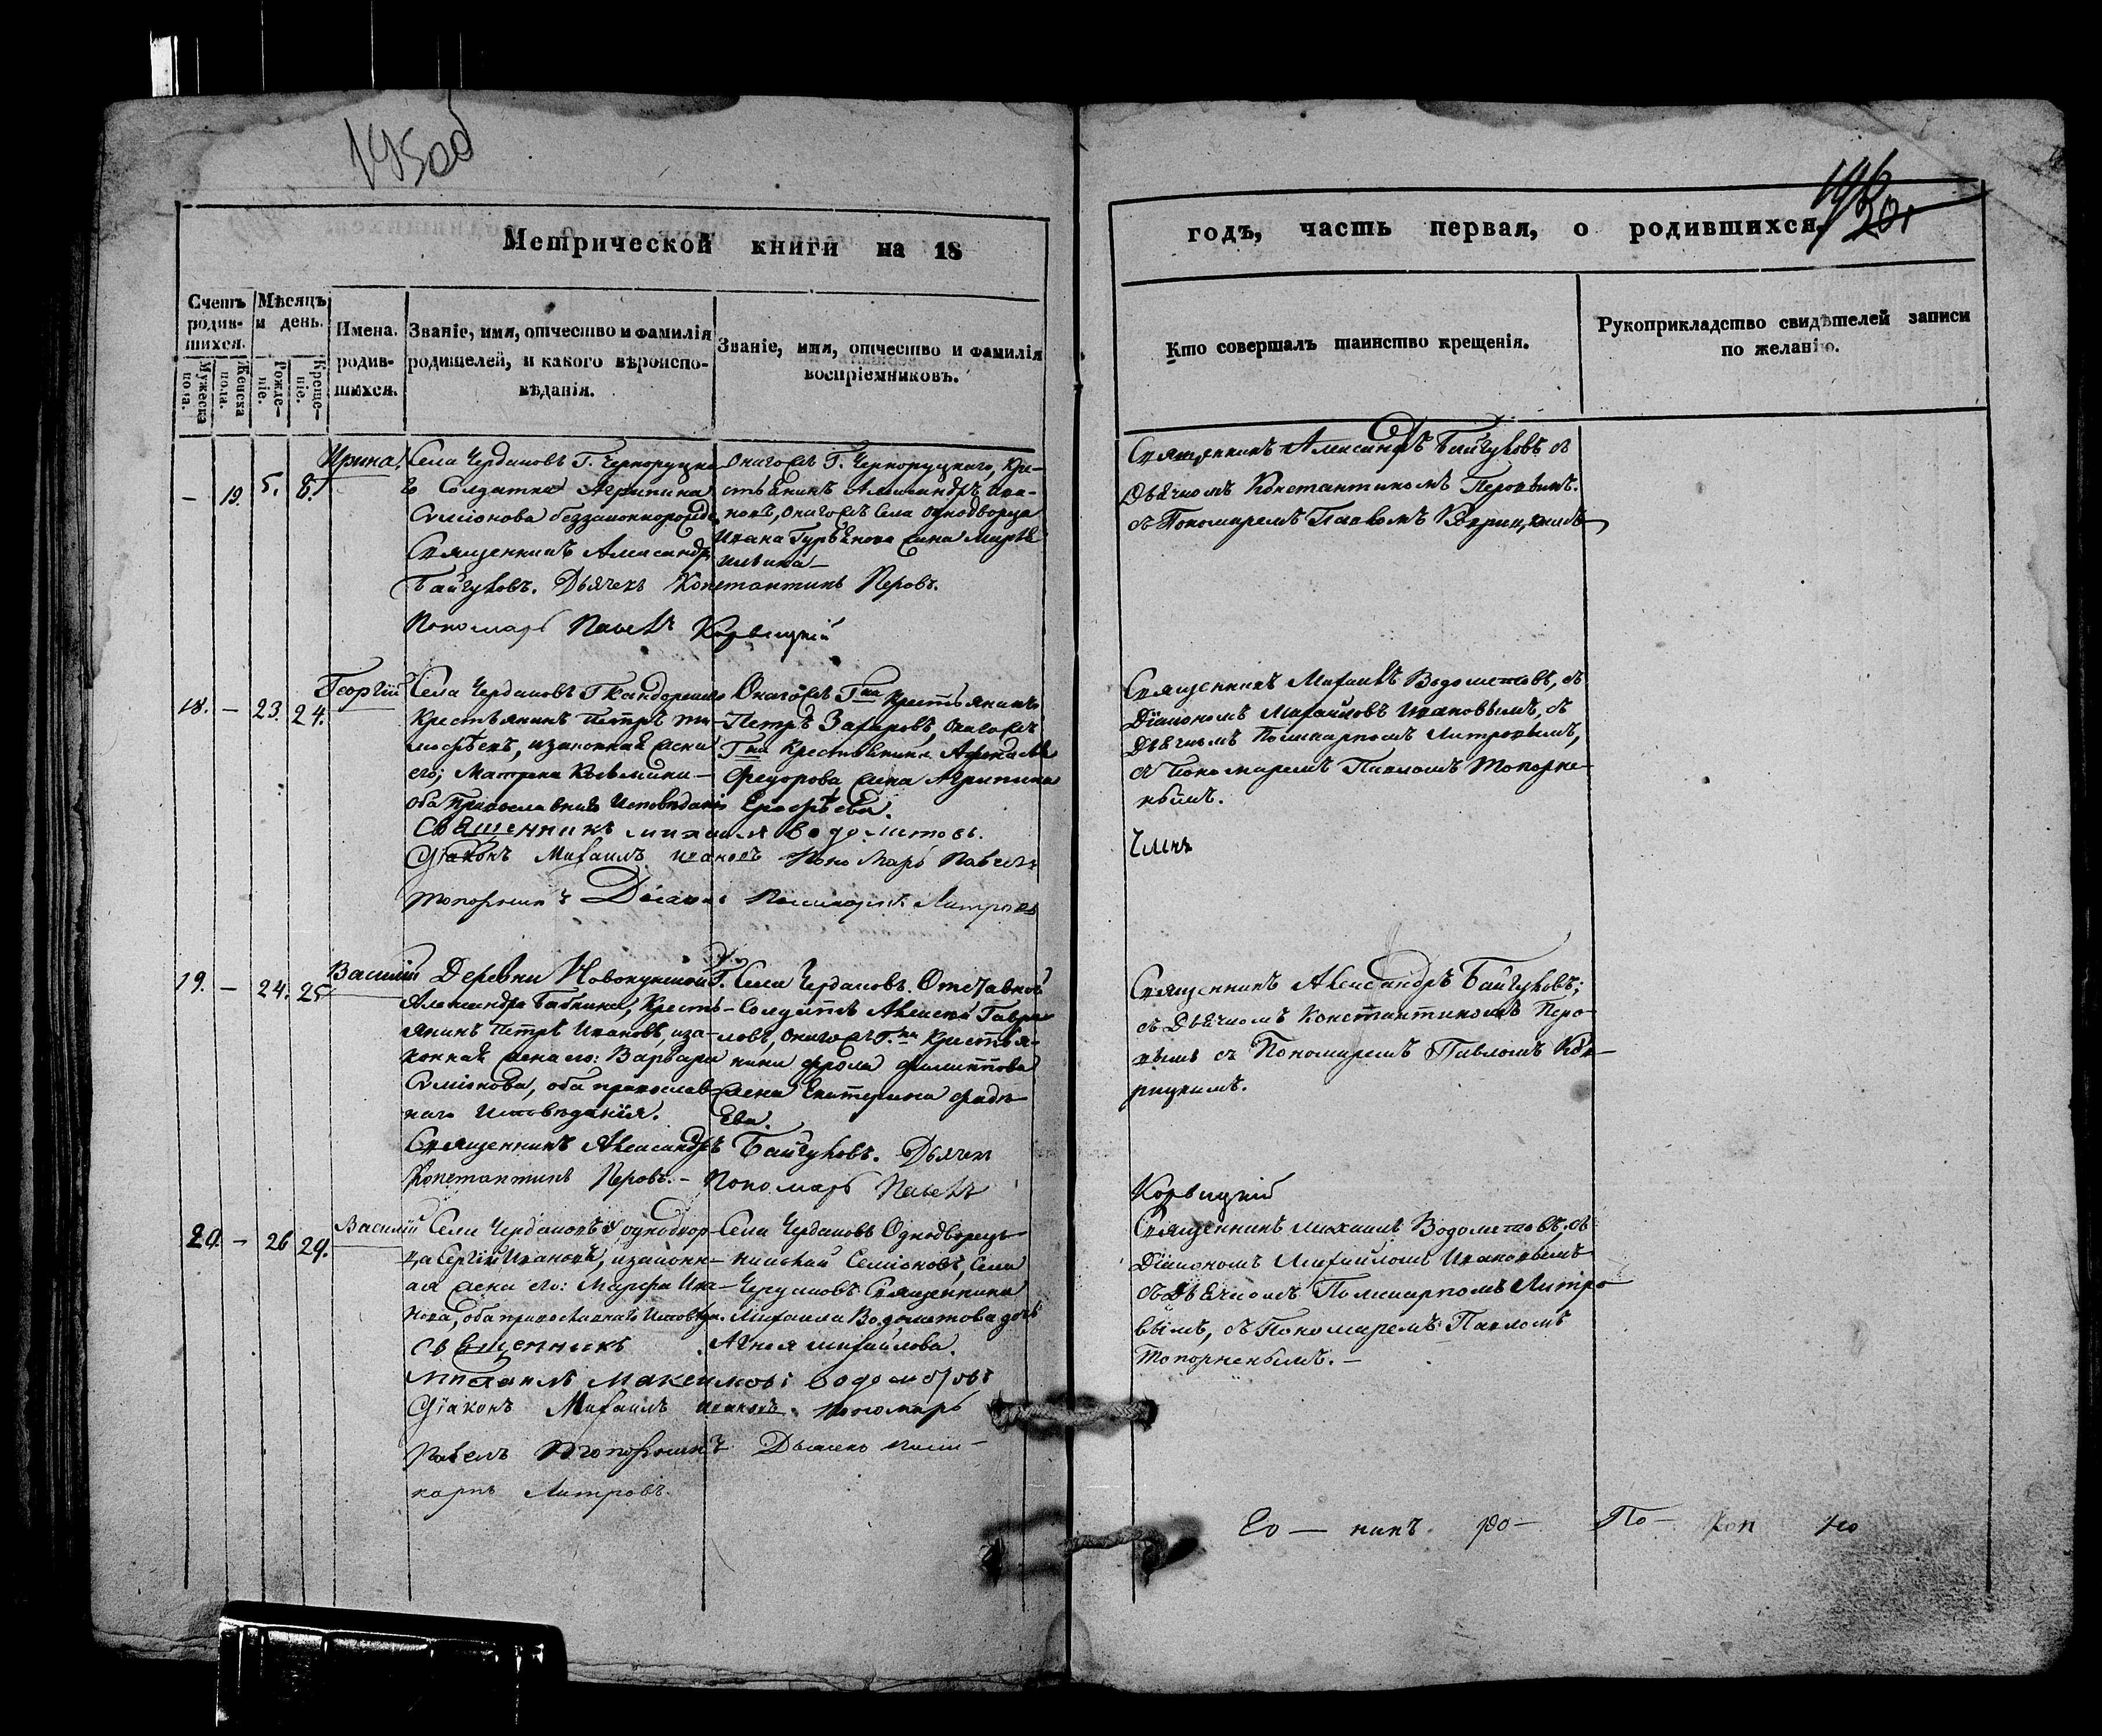 195об
196
201
Метрической книги на 18
годъ, часть первая, о родившихся.
Счетъ родив-шихся.
Мужеска пола.
Женска пола.
Мѣсяцъ и день.
Рожде-ніе.
Креще-ніе.
Имена родив-шихся.
Званіе, имя, отчество и фамилія
родителей, и какого вѣроиспо-
вѣданія.
Званіе, имя, отчество и фамилія
воспріемниковъ.
Кто совершалъ таинство крещенія.
Рукоприкладство свидѣтелей записи
по желанію.
— 19. 5. 8. Ирина.
Села Чердаковъ Г. Чернорущка-
го Солдатка Агрипина
Симіонова беззаконнорожде.
Священникъ Александръ
Байгуловъ. Дьячекъ Константинъ Перовъ.
Пономарь Павелъ
Онагожъ Г. Чернорущкаго, Кре-
стьянинъ Александръ Ива-
новъ, онагожъ села однодворца
Ивана Гурьянова жена Марѳа
Священникъ Александръ Байгуловъ съ
Дьячкомъ Константиномъ Перовымъ.
съ Пономаремъ Павломъ
18. — 23. 24. Георгій
Села Чердаковъ Г
Крестьянинъ Петръ Ти-
мофѣевъ, изаконная жена
его; Матрена Козьмина
оба Православнаго Исповѣданія
Священникъ Михаилъ Водолетовъ.
Діаконъ Михаилъ Ивановъ Пономарь Павелъ
Дьячекъ Поликарпъ Литровъ
Онагожъ Гна Крестьянинъ
Петръ Захаровъ, Онагожъ
Гна Крестьянина
Федорова жена Агрипина
Ерофѣева.
Священникъ Михаилъ Водолетовъ, съ
Діакономъ Михайломъ Ивановымъ, съ
Дьячкомъ Поликарпомъ Литровымъ,
съ Пономаремъ Павломъ Топорне-
нымъ.
19. — 24. 25. Василій
Деревни Г.
Александра Бабкина, Кресть-
янинъ Петръ Ивановъ, иза-
конная жена его: Варвара
Симіонова, оба православ-
наго Исповѣданія.
Священникъ Александръ Байгуловъ. Дьячекъ
Константинъ Перовъ. - Пономарь Павелъ
Села Чердаковъ. Отставной
Солдатъ Алексѣй Гаври-
ловъ, онагожъ Г.на Крестья-
нина Фрола Филиппова
жена Екатерина Фаде-
ева.
Священникъ Александръ Байгуловъ;
съ Дьячкомъ Константиномъ Перо-
вымъ съ Пономаремъ Павломъ Кор-
вицкимъ.
Корвицкій
20. — 26 29. Василій
Села Чердаковъ однодвор-
ца Сергій Ивановъ, изаконн-
ая жена его: Марфа Ива-
нова, оба православнаго Исповѣд.
Священникъ
Михаилъ Максимовъ Водолетовъ
Діаконъ Михаилъ Ивановъ. Пономарь
Павелъ Дьячекъ Поли-
карпъ Литровъ.
Села Чердаковъ Однодворецъ
Семіоновъ, Села
Чердаковъ Священника
Михаила Водолетова дочь
Агнея Михайлова.
Священникъ Михаилъ Водолетовъ, съ
Діакономъ Михайломъ Ивановымъ
съ Дьячкомъ Поликарпомъ Литро
вымъ, съ Пономаремъ Павломъ
Топорненымъ. —
никъ ро— По— Коп